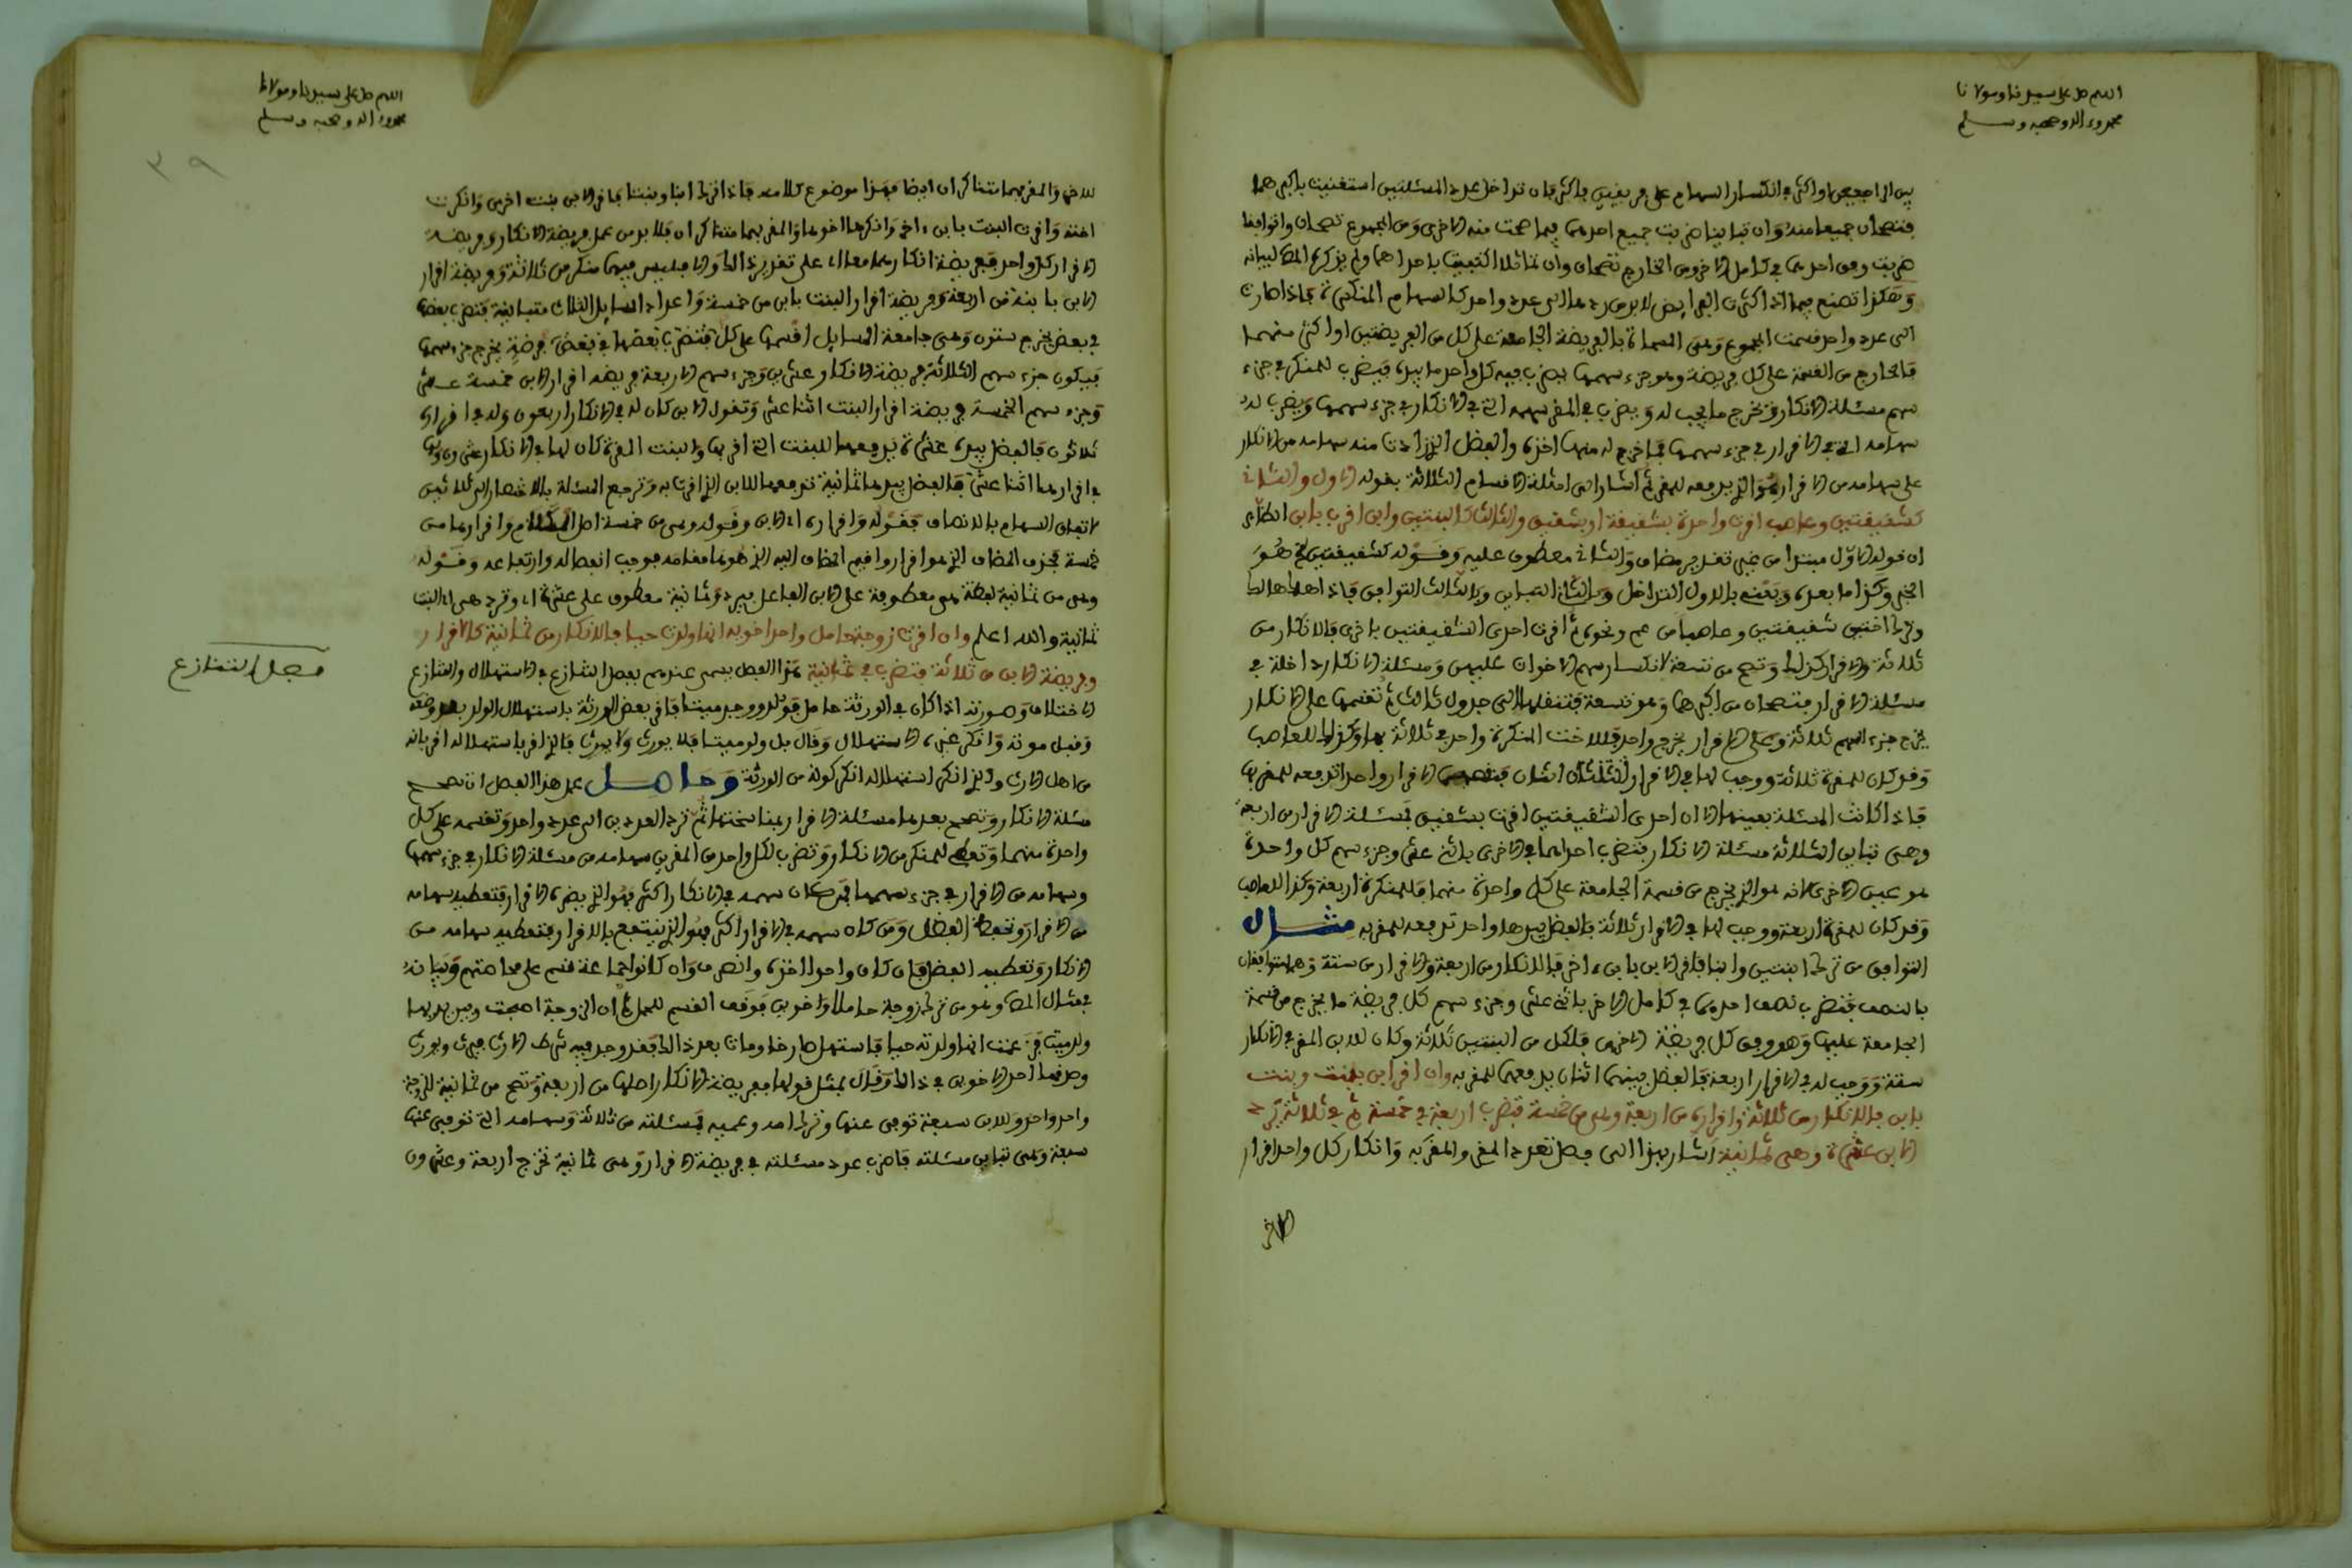 اللهم صل على سيدنا ومولانا
محمد وءاله وصحبه وسلم
فتصحان جميعا منه وان تباينا ضربت جميع احدهما فيما صحت منه الاخرى ومن المجموع تصحان وان توافقا
ضربت وفق احدهما في كامل الاخر ومن الخارج تصحان وان تماثلا اكتفيت باحداهما ولم يذكره المص لبيانه
الى عدد واحد قسمت المجموع وهى المسماة بالفريضة الجامعة على كل من الفريضتين او اكثر منهما
فالخارج من القسمة على كل فريضة وهو جزء سهمها يضرب فيه كل واحد ما بيده فيضرب للمنكر في جزء
سهم مسئلة الانكار فتخرج ما يجب له ويضرب في المقر سهمه الذى في الانكار في جزء سهمها ويضرب له
سهامه التى في الاقرار في جزء سهمها فما خرج له منهما اخذه والفضل الذي زادت منه سهامه من الانكار
على سهامه من الاقرار هو الذي يدفعه للمقر ثم اشار الى امثلة الاقسام الثلاثة بقوله الاول والثانى
كشقيقتين وعاصب اقرت واحدة بشقيقة او بشقيق والثالث كابنتين وابن اقر بابن الظاهر
ان قوله الاول مبتدا من غير تقدير مضاف والثانى معطوف عليه وقوله كشقيقتين الخ هو
الخبر وكذا ما بعده ويعنى بالاول التداخل وبالثانى التباين وبالثالث التوافق فاذا هلك هالك
وترك اختين شقيقتين وعاصبا من عم ونحوه ثم اقرت احدى الشقيقتين باخرى فالانكار من
ثلاثة والاقرار كذلك وتصح من تسعة لانكسار سهم الاخوات عليهن ومسئلة الانكار داخلة في
مسئلة الاقرار فتصحان من اكبرهما وهو تسعة فتنقلها الى جدول ثالث ثم تقسمها على الانكار
يخرج جزء السهم ثلاثة وعلى الاقرار يخرج واحد فللاخت المنكرة واحد في ثلاثة بها وكذلك للعاصب
وقد كان للمقرة ثلاثة ووجب لها في الاقرار اثنان فنقصها الاقرار واحدا تدفعه للمقر بها
فاذا كانت المسئلة بعينها الا ان احدى الشقيقتين اقرت بشقيق فمسئلة الاقرار من اربعة
وهى تباين الثلاثة مسئلة الانكار فتضرب احداهما في الاخرى باثنى عشر وجزء سهم كل واحدة
هو عين الاخرى لانه هو الذي يخرج من قسمة الجامعة على كل واحدة منهما فللمنكرة اربعة وكذا للعاصب
وقد كان للمقرة اربعة ووجب لها في الاقرار ثلاثة فالفضل بيدها واحد تدفعه للمقر به مثال
التوافق من ترك ابنتين وابنا فاقر الابن بابن ءاخر فالانكار من اربعة والاقرار من ستة وهما متوافقان
بالنصف فتضرب نصف احدهما في كامل الاخر باثنى عشر وجزء سهم كل فريضة ما يخرج من قسمة
الجامعة عليها وهو وفق كل فريضة الاخرى فلكل من البنتين ثلاثة وكان للابن المقر في الانكار
ستة ووجب له في الاقرار اربعة فالفضل بينهما اثنان يدفعهما للمقر به وان اقر ابن ببنت وبنت
بابن فالانكار من ثلاثة واقراره من اربعة وهى من خمسة فتضرب اربعة في خمسة ثم في ثلاثة يرد
الابن عشرة وهى ثمانية اشار بهذا الى فصل تعدد المقر والمقر به وانكار كل واحد اقرار
الاخر
اللهم صل على سيدنا ومولانا
محمد وءاله وصحبه وسلم
٣٩
للاخر والمقر بهما متناكران ايضا فهذا موضوع كلامه فاذا ترك ابنا وبنتا فاقر الابن ببنت اخرى وانكرت
اخته واقرت البنت بابن ءاخر وانكره اخوها والمقر بهما متناكران فلابد من عمل فريضة الانكار وفريضة
اقرار كل واحد
الابن بابنة من اربعة وفريضة اقرار البنت بابن من خمسة واعداد المسايل الثلاث متباينة فتضرب بعضها
في بعض يخرج ستون وهى جامعة المسايل اقسمها على كل فريضة يخرج جزء سهمها
فيكون جزء سهم الثلاثة فريضة الانكار عشرين وجزء سهم الاربعة فريضة اقرار الابن خمسة عشر
وجزء سهم الخمسة فريضة اقرار البنت اثنا عشر وتقول الابن كان له في الانكار اربعون وله في اقراره
ثلاثون فالفضل بيده عشرة يدفعها للبنت التى اقر بها والبنت المقرة كان لها في الانكار عشرون ولها
في اقرارها اثنا عشر فالفضل بيدها ثمانية تدفعها للابن الذي اقرت به وترجع المسئلة بالاختصار الى ثلاثين
لاتفاق السهام بالانصاف فقوله واقراره اي الابن وقوله وهى من خمسة اصل الكلام واقرارها من
خمسة فحذف المضاف الذي هو اقرار واقيم المضاف اليه الذي هو ها مقامه فوجب انفصاله وارتفاعه وقوله
وهى من ثمانية لفظة هى معطوفة على الابن الفاعل بيرد وثمانية معطوف على عشرة اي وترد هى اي البنت
ثمانية والله اعلم وان اقرت زوجة حامل واحد اخويه انها ولدت حيا فالانكار من ثمانية كالاقرار
وفريضة الابن من ثلاثة فتضرب في ثمانية هذا الفصل يسمى عندهم بفصل التنازع في الاستهلال والتنازع
فصل التنازع
الاختلاف وصورته اذا كان في الورثة حامل فولد ووجد ميتا فاقر بعض الورثة باستهلال الولد بعد وضعه
وقبل موته وانكر غيره الاستهلال وقال بل ولد ميتا فلا يورث ولا يرث فالذي اقر باستهلاله اقر بانه
من اهل الارث والذي انكر استهلاله انكر كونه من الورثة وحاصل عمل هذا الفصل ان تصحح
مسئلة الانكار وتصحح بعدها مسئلة الاقرار بمناسختها ثم ترد العددين الى عدد واحد وتقسمه على كل
واحدة منهما وتعطى للمنكر من الانكار وتضرب لكل واحد من المقرين سهامه من مسئلة الانكار في جزء سهمها
وسهامه من الاقرار في جزء سهمها فمن كان سهمه في الانكار اكثر فهو الذي يضره الاقرار فتعطيه سهامه
من الاقرار وتحفظ الفضل ومن كان سهمه في الاقرار اكثر فهو الذي ينتفع بالاقرار فتعطيه سهامه من
الانكار وتعطيه الفضل فان كان واحدا اخذه وانصرف وان كانوا جماعة قسم على محاصتهم وبيانه
في مثال المص وهو من ترك زوجة حاملا واخوين فوقف القسم للحمل ثم ان الزوجة اصبحت وبين يديها
ولد ميت فزعمت انها ولدته حيا فاستهل صارخا ومات بعد ذلك فقد وجد فيه شرط الارث فيرث ويورث
وصدقها احد الاخوين في ذلك وقال بمثل قولها ففريضة الانكار اصلها من اربعة وتصح من ثمانية للزوجة
سبعة وهى تباين مسئلته فاضرب عدد مسئلته في فريضة الاقرار وهى ثمانية تخرج اربعة وعشرون